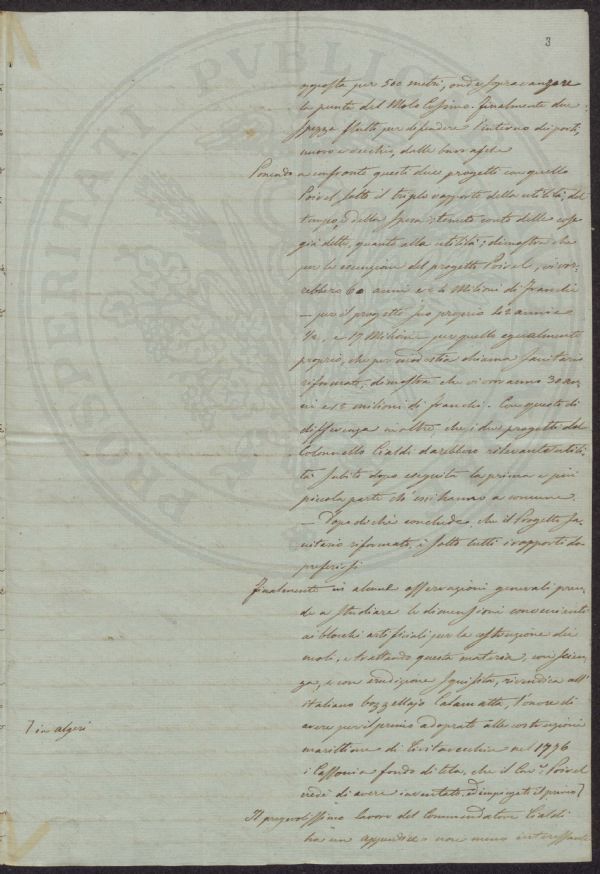 3
opposta per 500 metri, onde sopravanzare
la punta del Molo Cessino. Finalmente due
spezza flutti per difendere l'interno dei porti,
nuovo e vecchio, dalle burrasche
Ponendo a confronto questi due progetti con quello
Poirel, sotto il triplo rapporto della utilità; del
tempo, e della spesa; tenuto conto delle cose
già dette, quanto alla utilità; dimostra che
per la esecuzione del progetto Poirel, vi vor-
rebbero 60 anni e 24 Milioni di franchi
— per il progetto suo proprio 42 anni e
½, e 17 Milioni per quello egualmente
proprio, che per modestia chiama Sanitario
riformato, dimostra che vi vorranno 30 an-
ni e 12 milioni di franchi. Con questo di
differenza inoltre, che i due progetti del
Colonnello Cialdi darebbero rilevante utili-
tà subito dopo eseguita la prima e più
piccola parte ch'essi hanno a comune
— Dopo di che conclude, che il Progetto Sa-
nitario riformato, è sotto tutti i rapporti da
preferirsi.
Finalmente in alcune osservazioni generali pren-
de a studiare le dimensioni convenienti
ai blocchi artificiali per la costruzione dei
moli, e trattando questa materia, con scien-
za, e con erudizione squisita, rivendica all'
italiano bozzellajo Calamatta, l'onore di
avere per il primo adoprato alle costruzioni
marittime di Civitavecchia nel 1776
i Cassoni a fondo di tela, che il Cav.r Poirel
crede di avere inventato, ed impiegati il primo
7 in Algeri
Il pregevolissimo lavoro del Commendatore Cialdi
ha un appendice non meno interessante
PROSPERITATI PVBLICAE